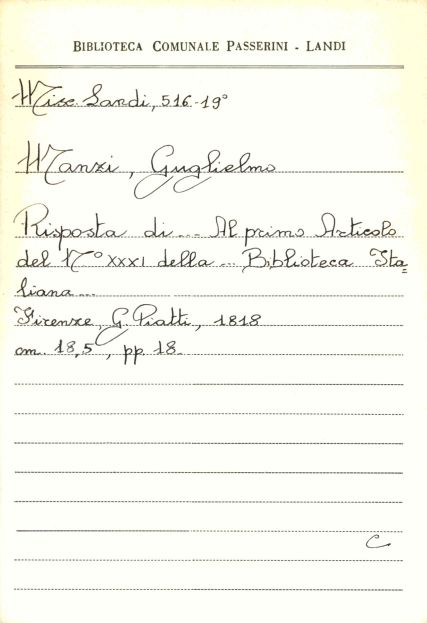 BIBLIOTECA COMUNALE PASSERINI - LANDI
Misc. Landi, 516-19°
Manzi, Guglielmo
Risposta di ... Al primo Articolo
del N° XXXI della ... Biblioteca Ita=
liana ...
Firenze, G. Piatti, 1818
cm. 18,5, pp. 18.
C